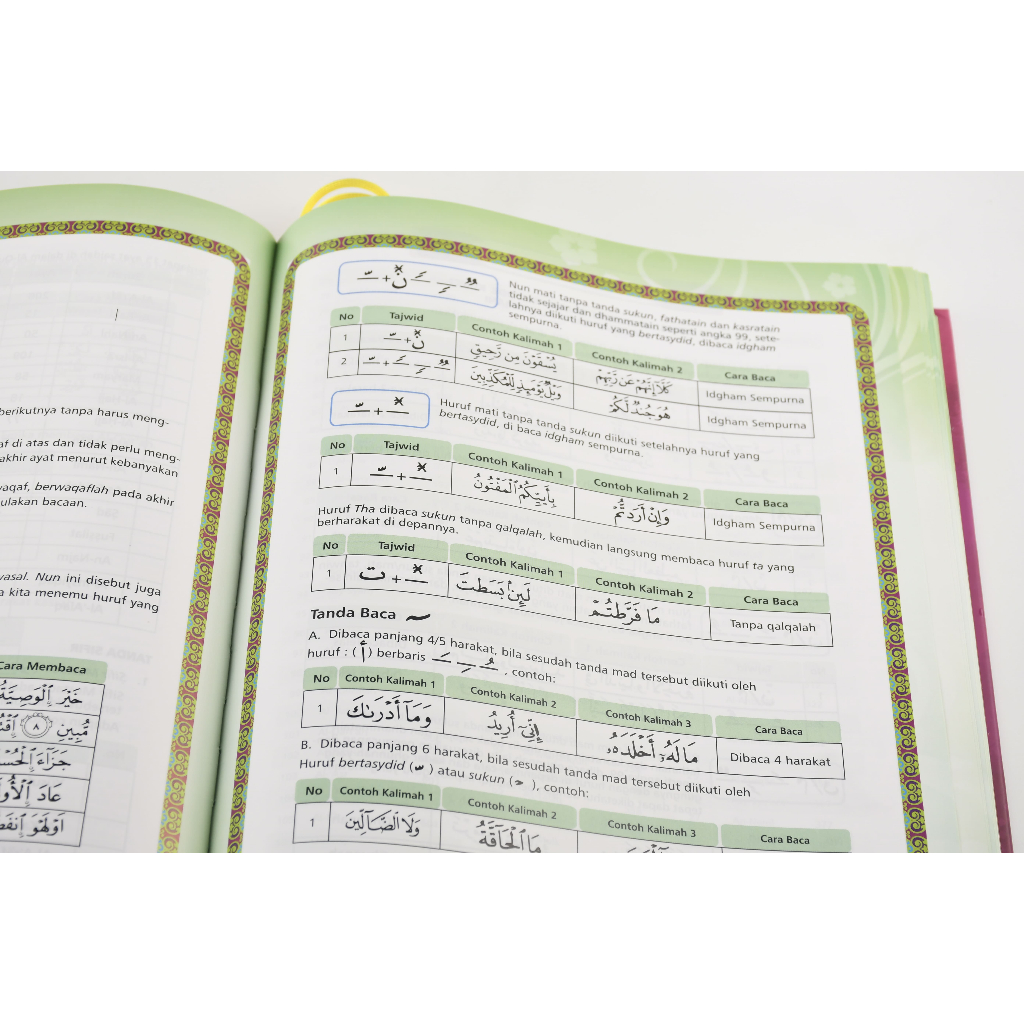 berikutnya tanpa harus meng-
af di atas dan tidak perlu meng-
akhir ayat menurut kebanyakan
aqaf, berwaqaflah pada akhir
ulakan bacaan.
asal. Nun ini disebut juga
a kita menemu huruf yang
Cara Membaca
خَيْرَ ٱلْوَصِيَّةُ
مُّبِينٍ ٨
عَادَ ٱلْأُو
Nun mati tanpa tanda sukun, fathatain dan kasratain
tidak sejajar dan dhammatain seperti angka 99, sete-
lahnya diikuti huruf yang bertasydid, dibaca idgham
sempurna.
No Tajwid Contoh Kalimah 1 Contoh Kalimah 2 Cara Baca
1 نْ + ـّ يُسْقَوْنَ مِن رَّحِيقٍ كَلَّآ إِنَّهُمْ عَن رَّبِّهِمْ Idgham Sempurna
2 وَيْلٌ يَوْمَئِذٍ لِّلْمُكَذِّبِينَ هُوَ جُندٌ لَّكُمْ Idgham Sempurna
Huruf mati tanpa tanda sukun diikuti setelahnya huruf yang
bertasydid, di baca idgham sempurna.
No Tajwid Contoh Kalimah 1 Contoh Kalimah 2 Cara Baca
1 بِأَييِّكُمُ ٱلْمَفْتُونُ وَإِنْ أَرَدتُّمُ Idgham Sempurna
Huruf Tha dibaca sukun tanpa qalqalah, kemudian langsung membaca huruf ta yang
berharakat di depannya.
No Tajwid Contoh Kalimah 1 Contoh Kalimah 2 Cara Baca
1 ت + لَئِنۢ بَسَطتَ مَا فَرَّطتُمْ Tanpa qalqalah
Tanda Baca ~
A. Dibaca panjang 4/5 harakat, bila sesudah tanda mad tersebut diikuti oleh
huruf : (أ) berbaris , contoh:
No Contoh Kalimah 1 Contoh Kalimah 2 Contoh Kalimah 3 Cara Baca
1 وَمَآ أَدْرَىٰكَ إِنِّىٓ أُرِيدُ مَالَهُۥٓ أَخْلَدَهُۥ Dibaca 4 harakat
B. Dibaca panjang 6 harakat, bila sesudah tanda mad tersebut diikuti oleh
Huruf bertasydid ( ّ ) atau sukun ( ْ ), contoh:
No Contoh Kalimah 1 Contoh Kalimah 2 Contoh Kalimah 3 Cara Baca
1 وَلَا ٱلضَّآلِّينَ مَا ٱلْحَآقَّةُ